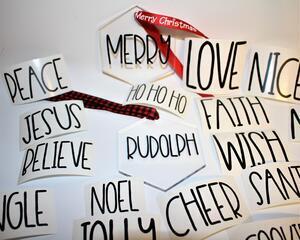 Merry Christmas
MERRY
LOVE
NICE
PEACE
HO HO HO
JESUS
FAITH
BELIEVE
RUDOLPH
WISH
NOEL
CHEER
JOLLY